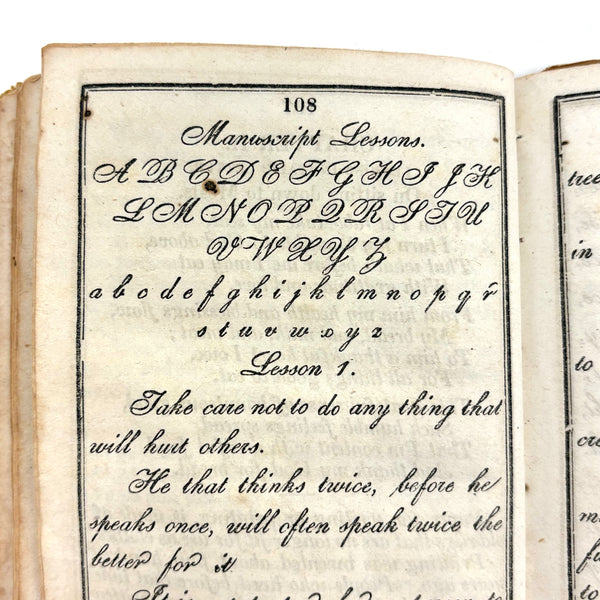 108
Manuscript Lessons.
A B C D E F G H I J K
L M N O P Q R S T U
V W X Y Z
a b c d e f g h i j k l m n o p q r
s t u v w x y z
Lesson 1.
Take care not to do any thing that
will hurt others.
He that thinks twice, before he
speaks once, will often speak twice the
better for it
tree
in
to